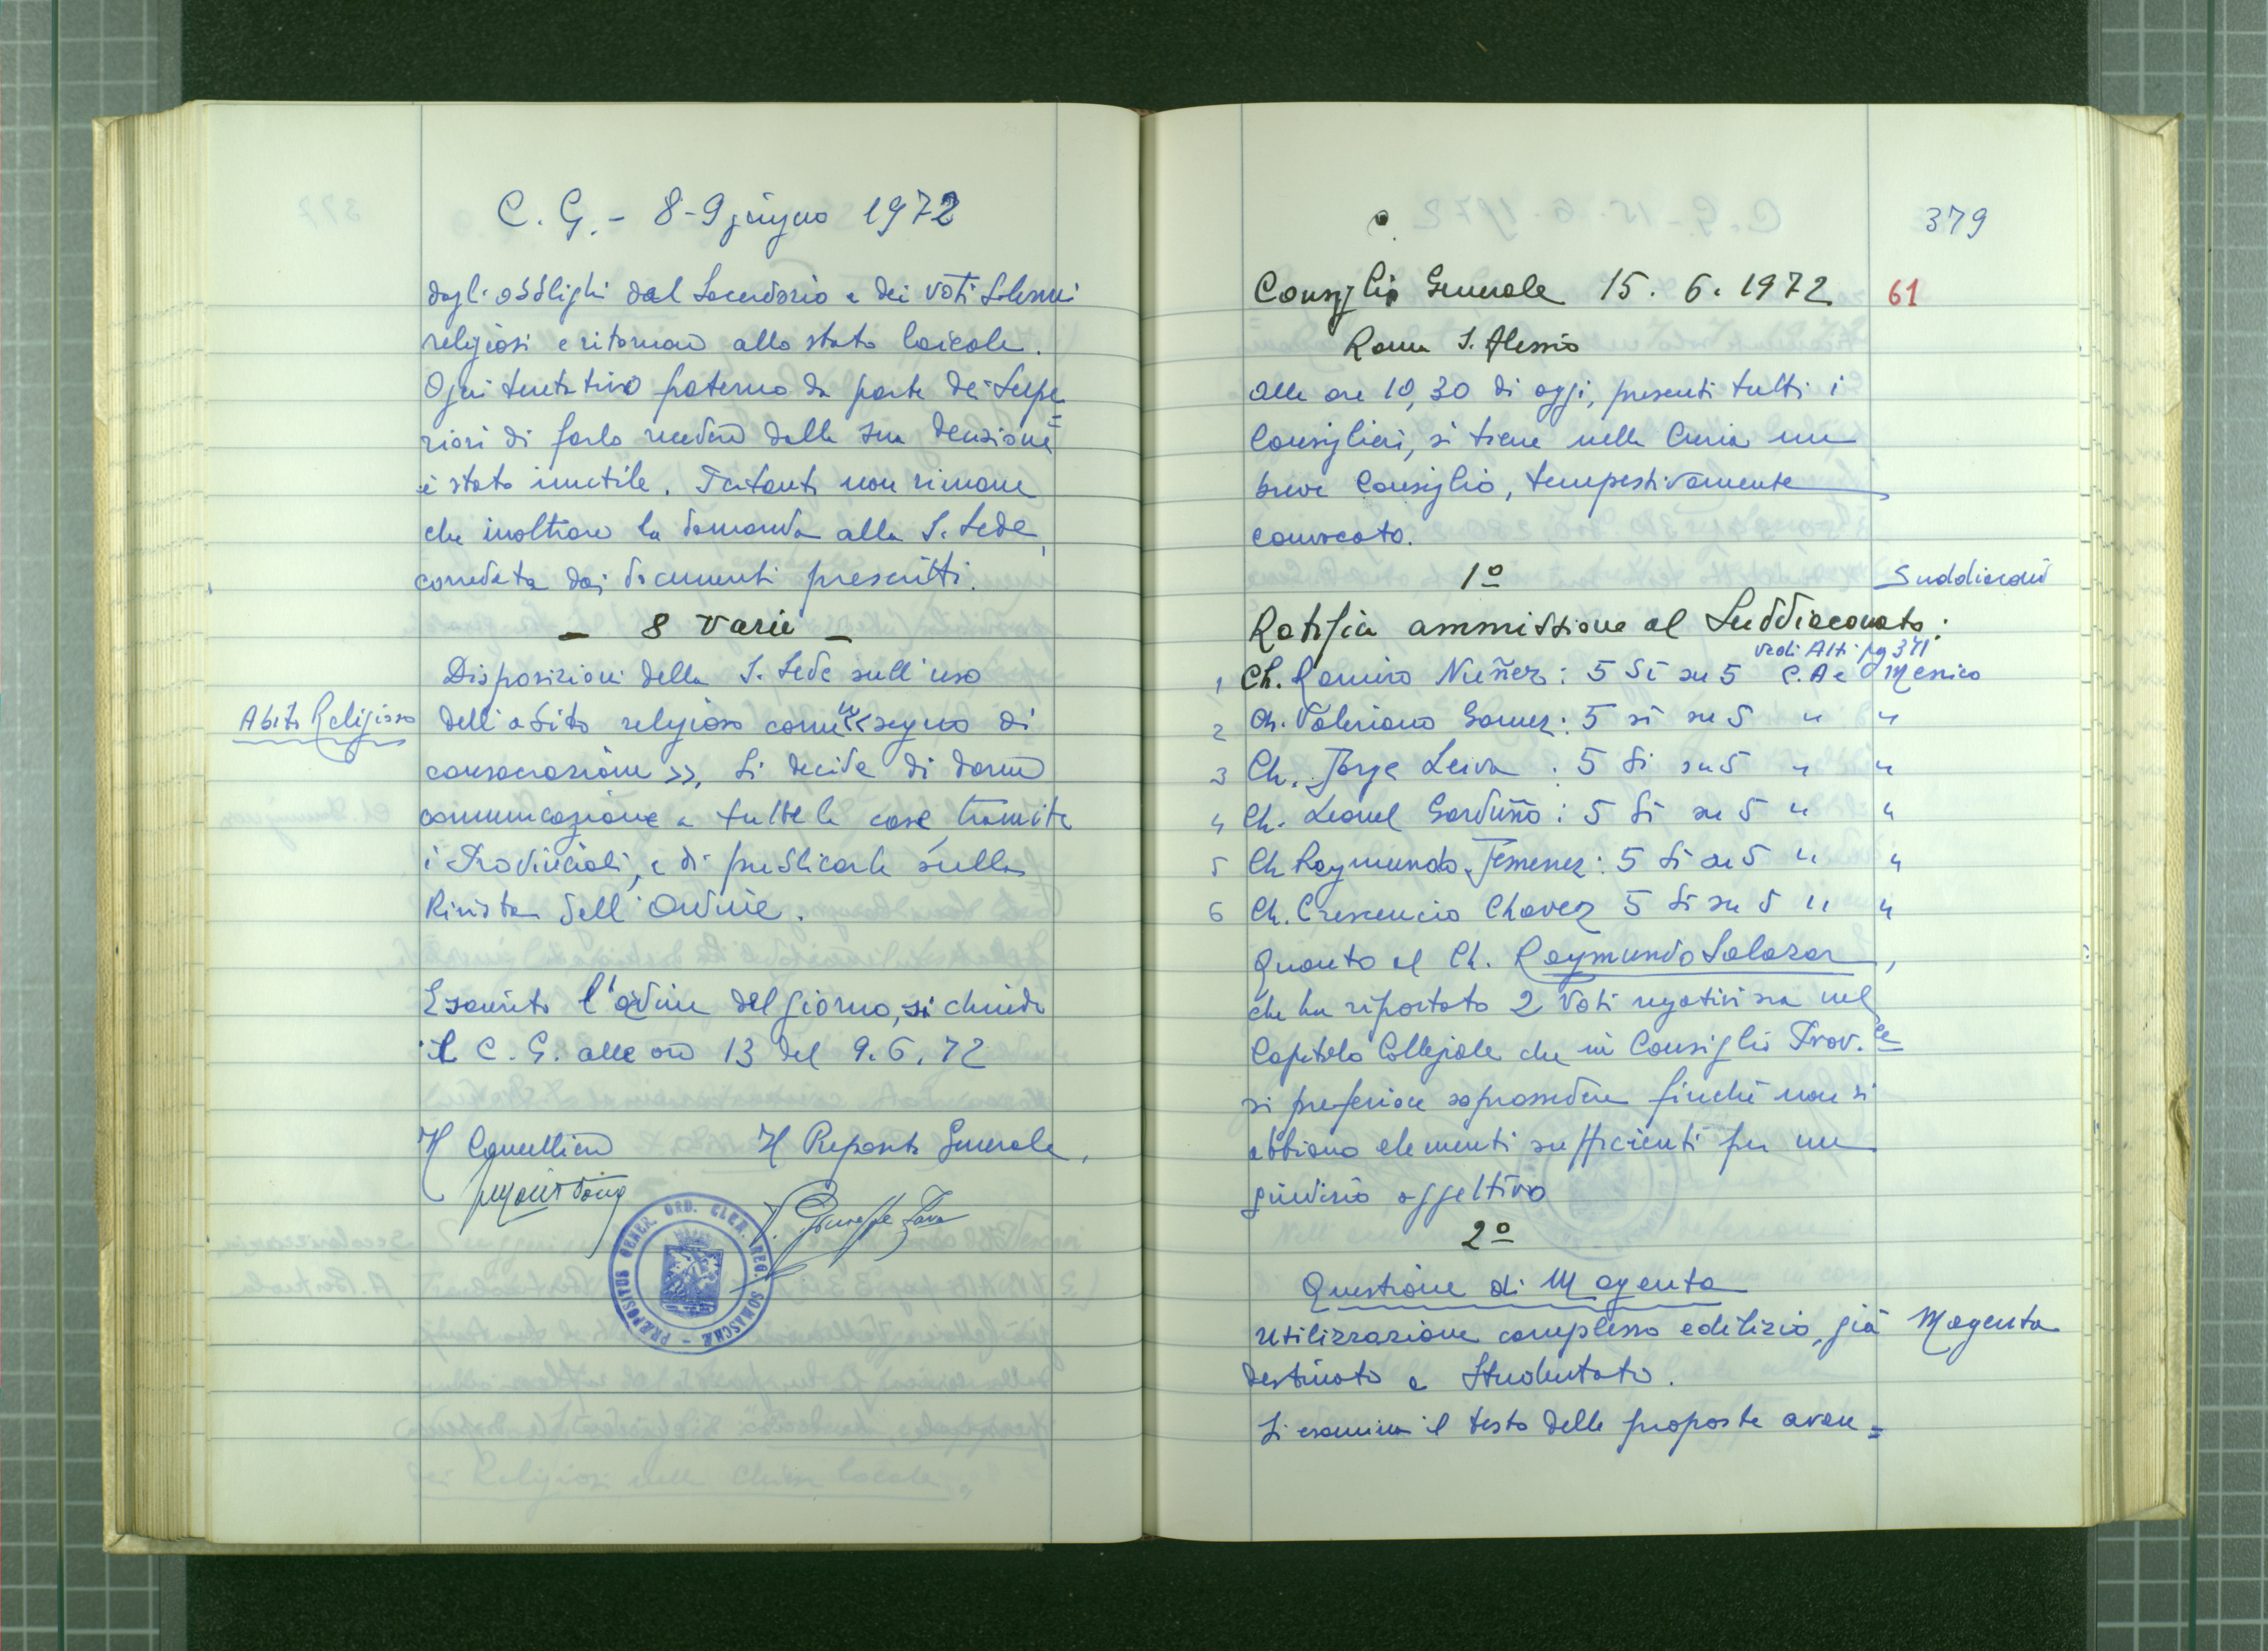 C. G. - 8-9 giugno 1972
dagli obblighi del Sacerdozio e dei voti Solenni
religiosi e ritornare allo stato laicale.
Ogni tentativo paterno da parte dei Supe=
riori di farlo recedere dalla sua decisione
è stato inutile. Pertanto non rimane
che inoltrare la domanda alla S. Sede,
corredata dai documenti prescritti.
- 8 Varie -
Disposizioni della S. Sede sull'uso
Abito Religioso
dell'abito religioso come << segno di
consacrazione >>. Si decide di darne
comunicazione a tutte le case, tramite
i Provinciali, e di pubblicarle sulla
Rivista dell'Ordine.
Esaurito l'ordine del giorno, si chiude
il C. G. alle ore 13 del 9.6.72
Il Cancelliere Il Preposito Generale
P. Giuseppe Fava
PRÆPOSITUS GENER. ORD. CLER. REG. SOMASCHÆ
379
Consiglio Generale 15. 6. 1972 61
Roma S. Alessio
Alle ore 10,30 di oggi, presenti tutti i
Consiglieri, si tiene nella Curia un
breve Consiglio, tempestivamente
convocato.
1º
Suddiaconi
Ratifica ammissione al Suddiaconato:
vedi Atti pg 371
1 Ch. Ramiro Nuñez: 5 Sì su 5 C.A e Messico
2 Ch. Valeriano Gomez: 5 sì su 5 " "
3 Ch. Jorge Leiva : 5 Sì su 5 " "
4 Ch. Leonel Garduño: 5 Sì su 5 " "
5 Ch Raymundo Jemenez: 5 Sì su 5 " "
6 Ch. Crescencio Chavez 5 Sì su 5 " "
Quanto al Ch. Raymundo Salazar,
che ha riportato 2 Voti negativi sia nel
Capitolo Collegiale che in Consiglio Prov.le
si preferisce soprassedere finchè non si
abbiano elementi sufficienti per un
giudizio oggettivo
2º
Questione di Magenta
Utilizzazione complesso edilizio, già
Magenta
destinato a Studentato.
Si esamina il testo delle proposte avan=